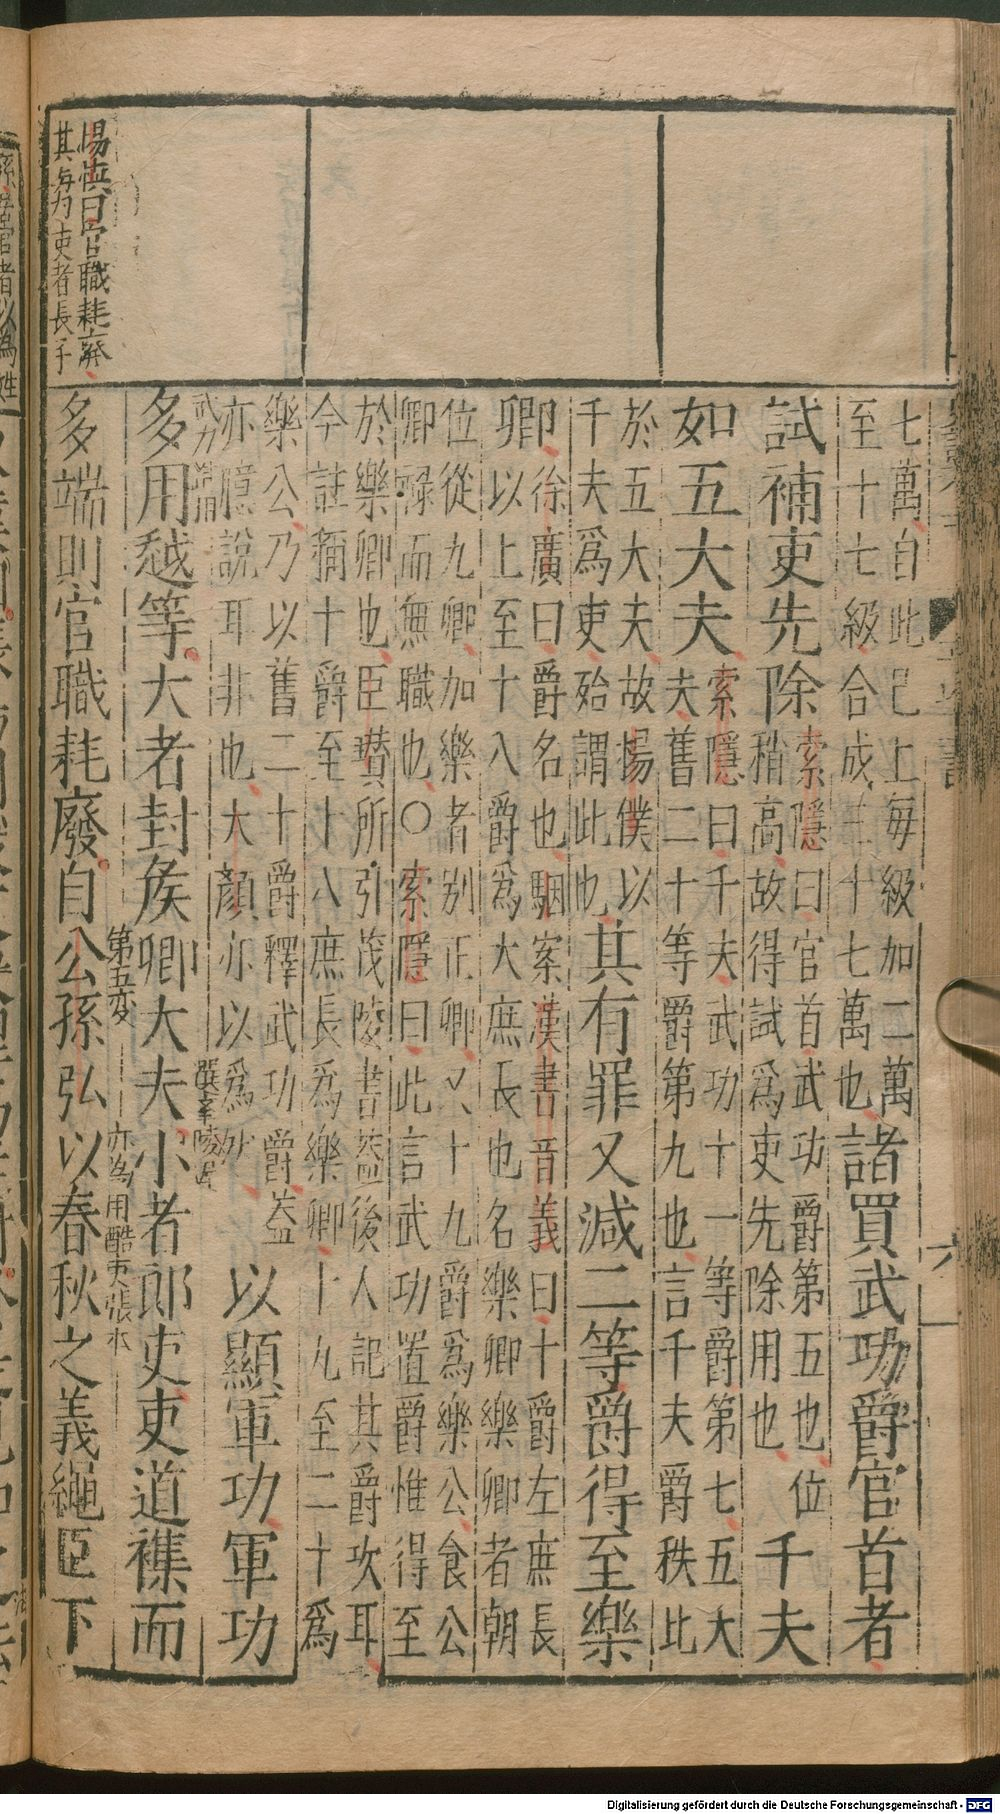 七萬自此已上每級加二萬
至十七級合成三十七萬也諸買武功爵官首者
試補吏先除索隱曰官首武功爵第五也位
稍高故得試爲吏先除用也千夫
如五大夫索隱曰千夫武功十一等爵第七五大
夫舊二十等爵第九也言千夫爵秩比
於五大夫故揚僕以
千夫爲吏殆謂此也其有罪又減二等爵得至樂
卿徐廣曰爵名也駰案漢書音義曰十爵左庶長
以上至十八爵爲大庶長也名樂卿樂卿者朝
位從九卿加樂者別正卿又十九爵爲樂公食公
卿祿而無職也○索隱曰此言武功置爵惟得至
於樂卿也臣瓚所引茂陵書蓋後人記其爵次耳
今註稱十爵至十八庶長爲樂卿十九至二十爲
樂公乃以舊二十爵釋武功爵蓋
亦臆說耳非也大顏亦以爲然以顯軍功軍功
多用越等大者封侯卿大夫小者郎吏吏道襍而
第五變
多端則官職耗廢自公孫弘以春秋之義繩臣下
楊慎曰官職耗廢
其每吏者長子